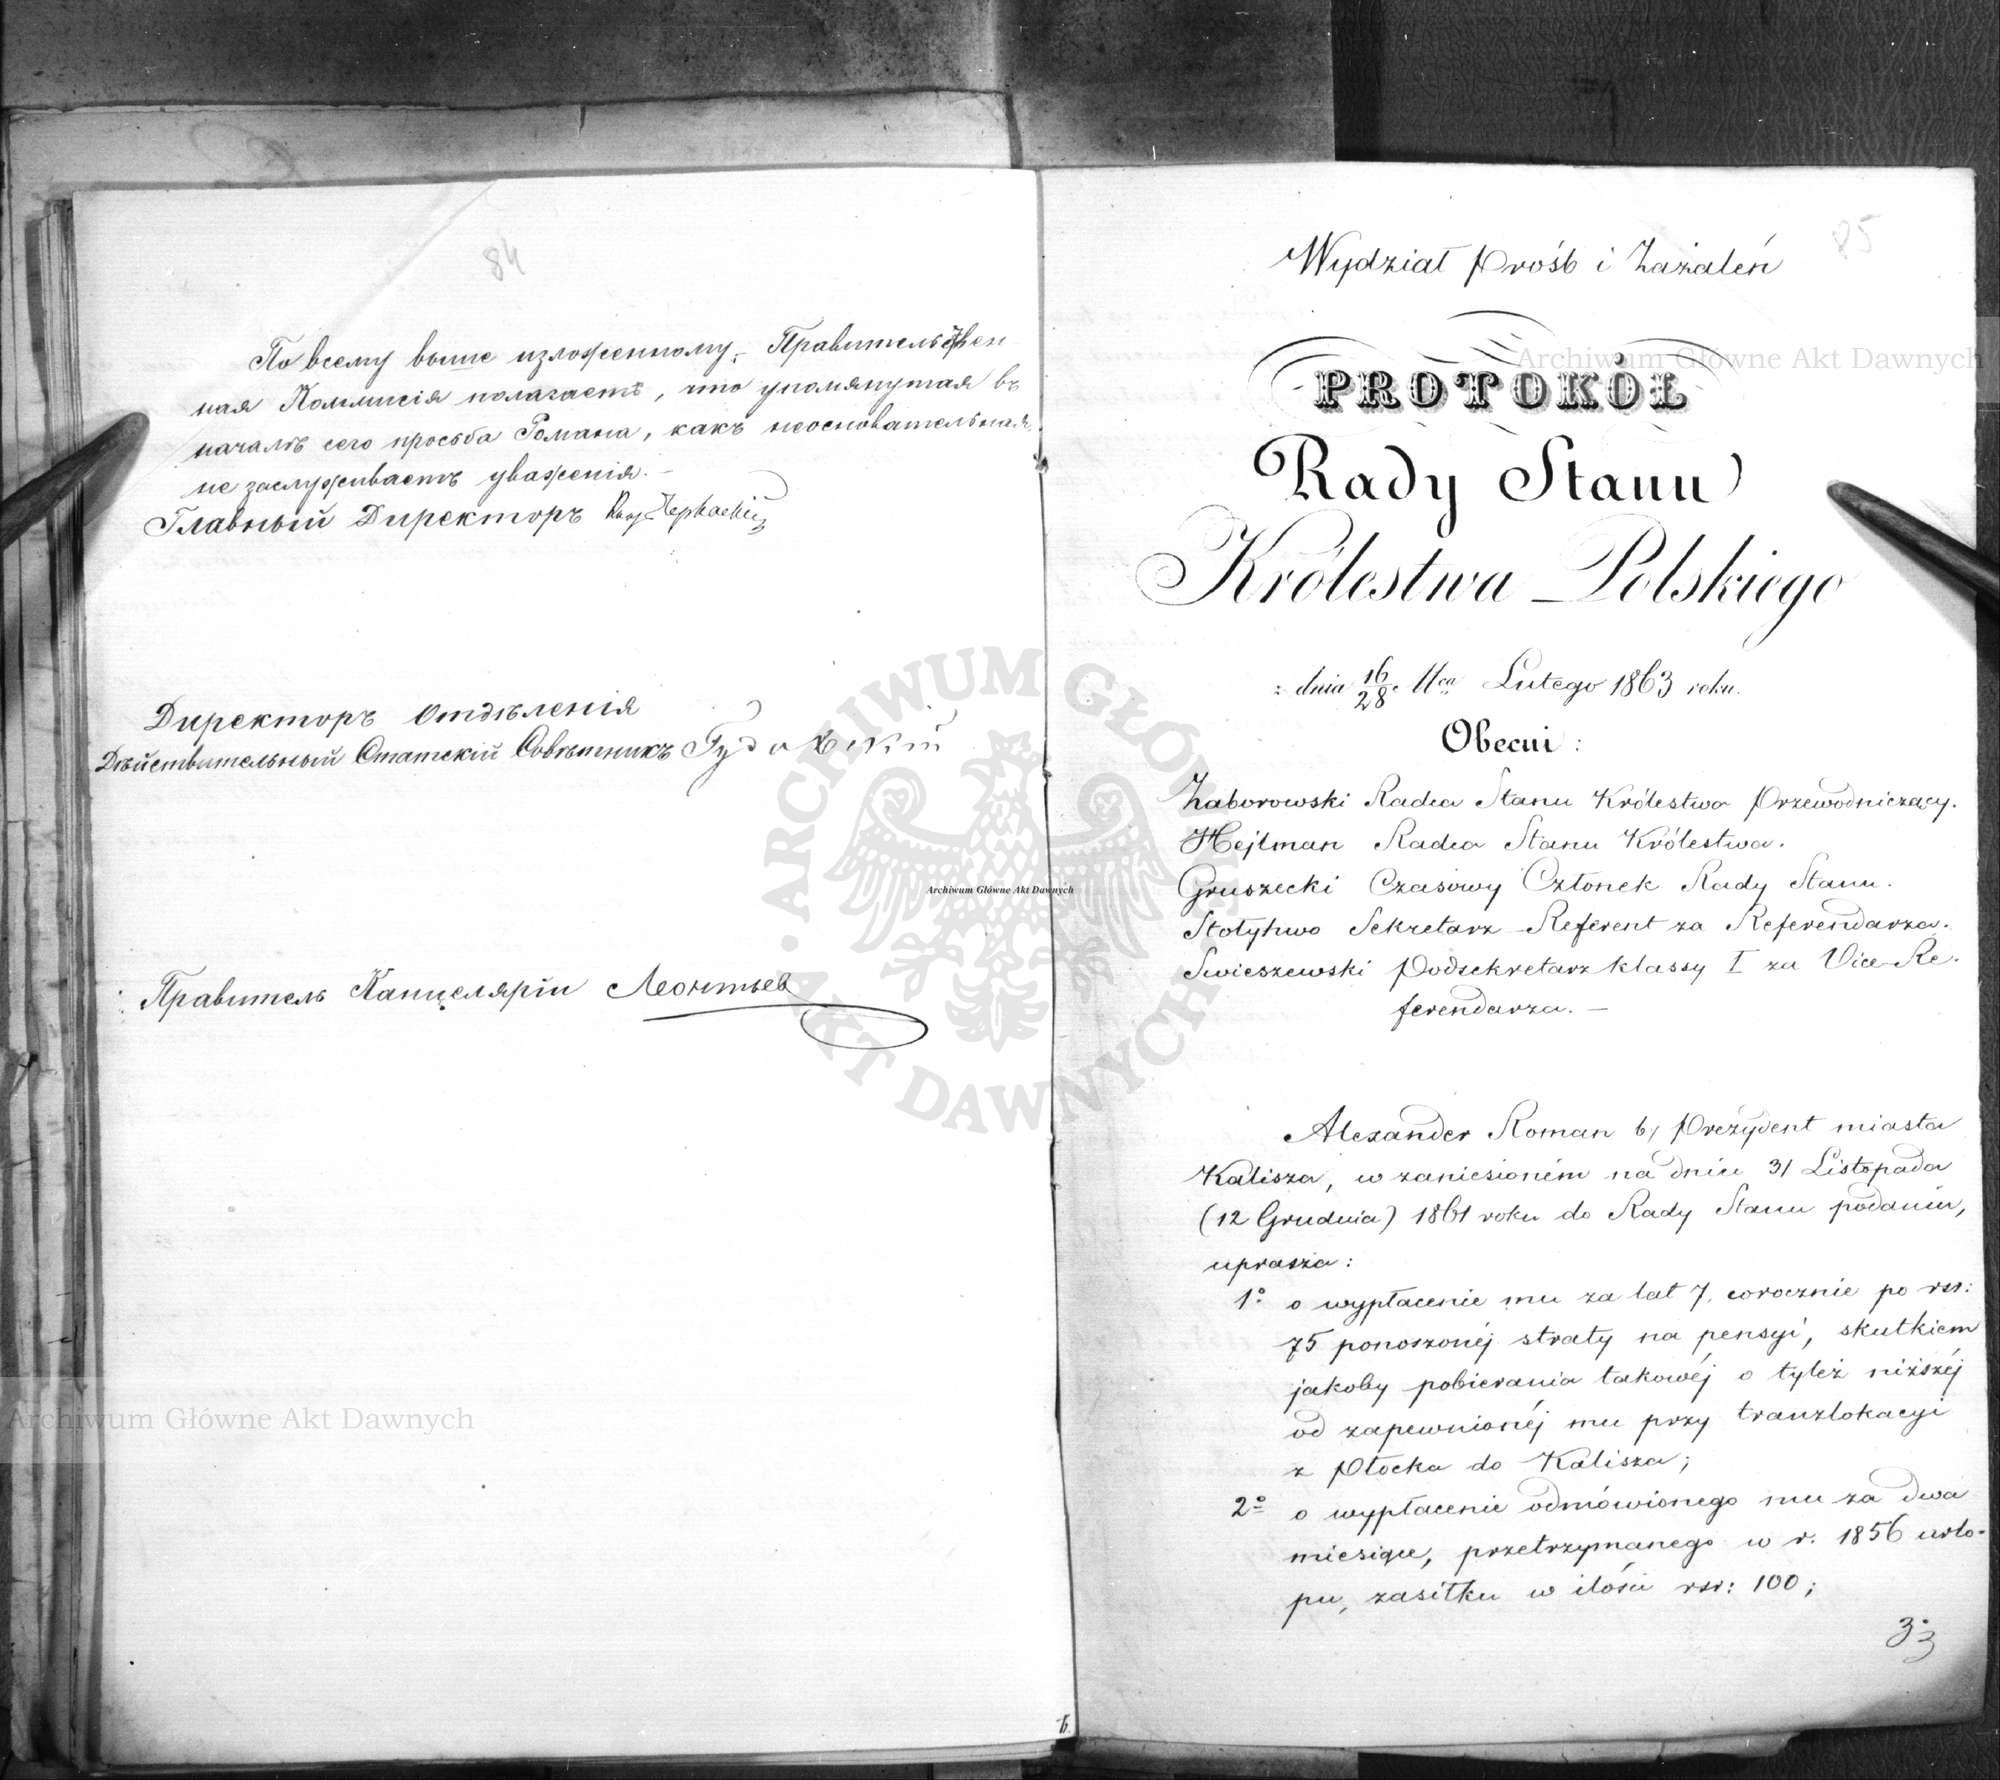 84
По всему выше изложенному, Правительствен-
ная Коммисія полагаетъ, что упомянутая въ
началѣ сего просьба Романа, какъ неосновательная,
не заслуживаетъ уваженія. —
Главный Директоръ
Директоръ Отдѣленія
Дѣйствительный Статскій Совѣтникъ
Правитель Канцеляріи Леонтьев
85
Wydział Próśb i Zażaleń
PROTOKÓŁ
Rady Stanu
Królestwa Polskiego
z dnia 16/28 Mca Lutego 1863 roku.
Obecni:
Zaborowski Radca Stanu Królestwa Przewodniczący.
Hejlman Radca Stanu Królestwa.
Gruszecki Czasowy Członek Rady Stanu.
Stołyhwo Sekretarz Referent za Referendarza.
Swieszewski Podsekretarz klassy I za Vice-Re-
ferendarza. —
Alexander Roman b/ Prezydent miasta
Kalisza, w zaniesioném na dniu 31 Listopada
(12 Grudnia) 1861 roku do Rady Stanu podaniu,
uprasza:
1o o wypłacenie mu za lat 7, corocznie po rsr:
75 ponoszonéj straty na pensyi, skutkiem
jakoby pobierania takowéj o tyleż niższéj
od zapewnionéj mu przy tranzlokacyi
z Płocka do Kalisza;
2o o wypłacenie odmówionego mu za dwa
miesiące, przetrzymanego w r. 1856 urlo-
pu, zasiłku w ilości rsr: 100;
3o
Archiwum Główne Akt Dawnych
Archiwum Główne Akt Dawnych
Archiwum Główne Akt Dawnych
ARCHIWUM GŁÓWNE AKT DAWNYCH